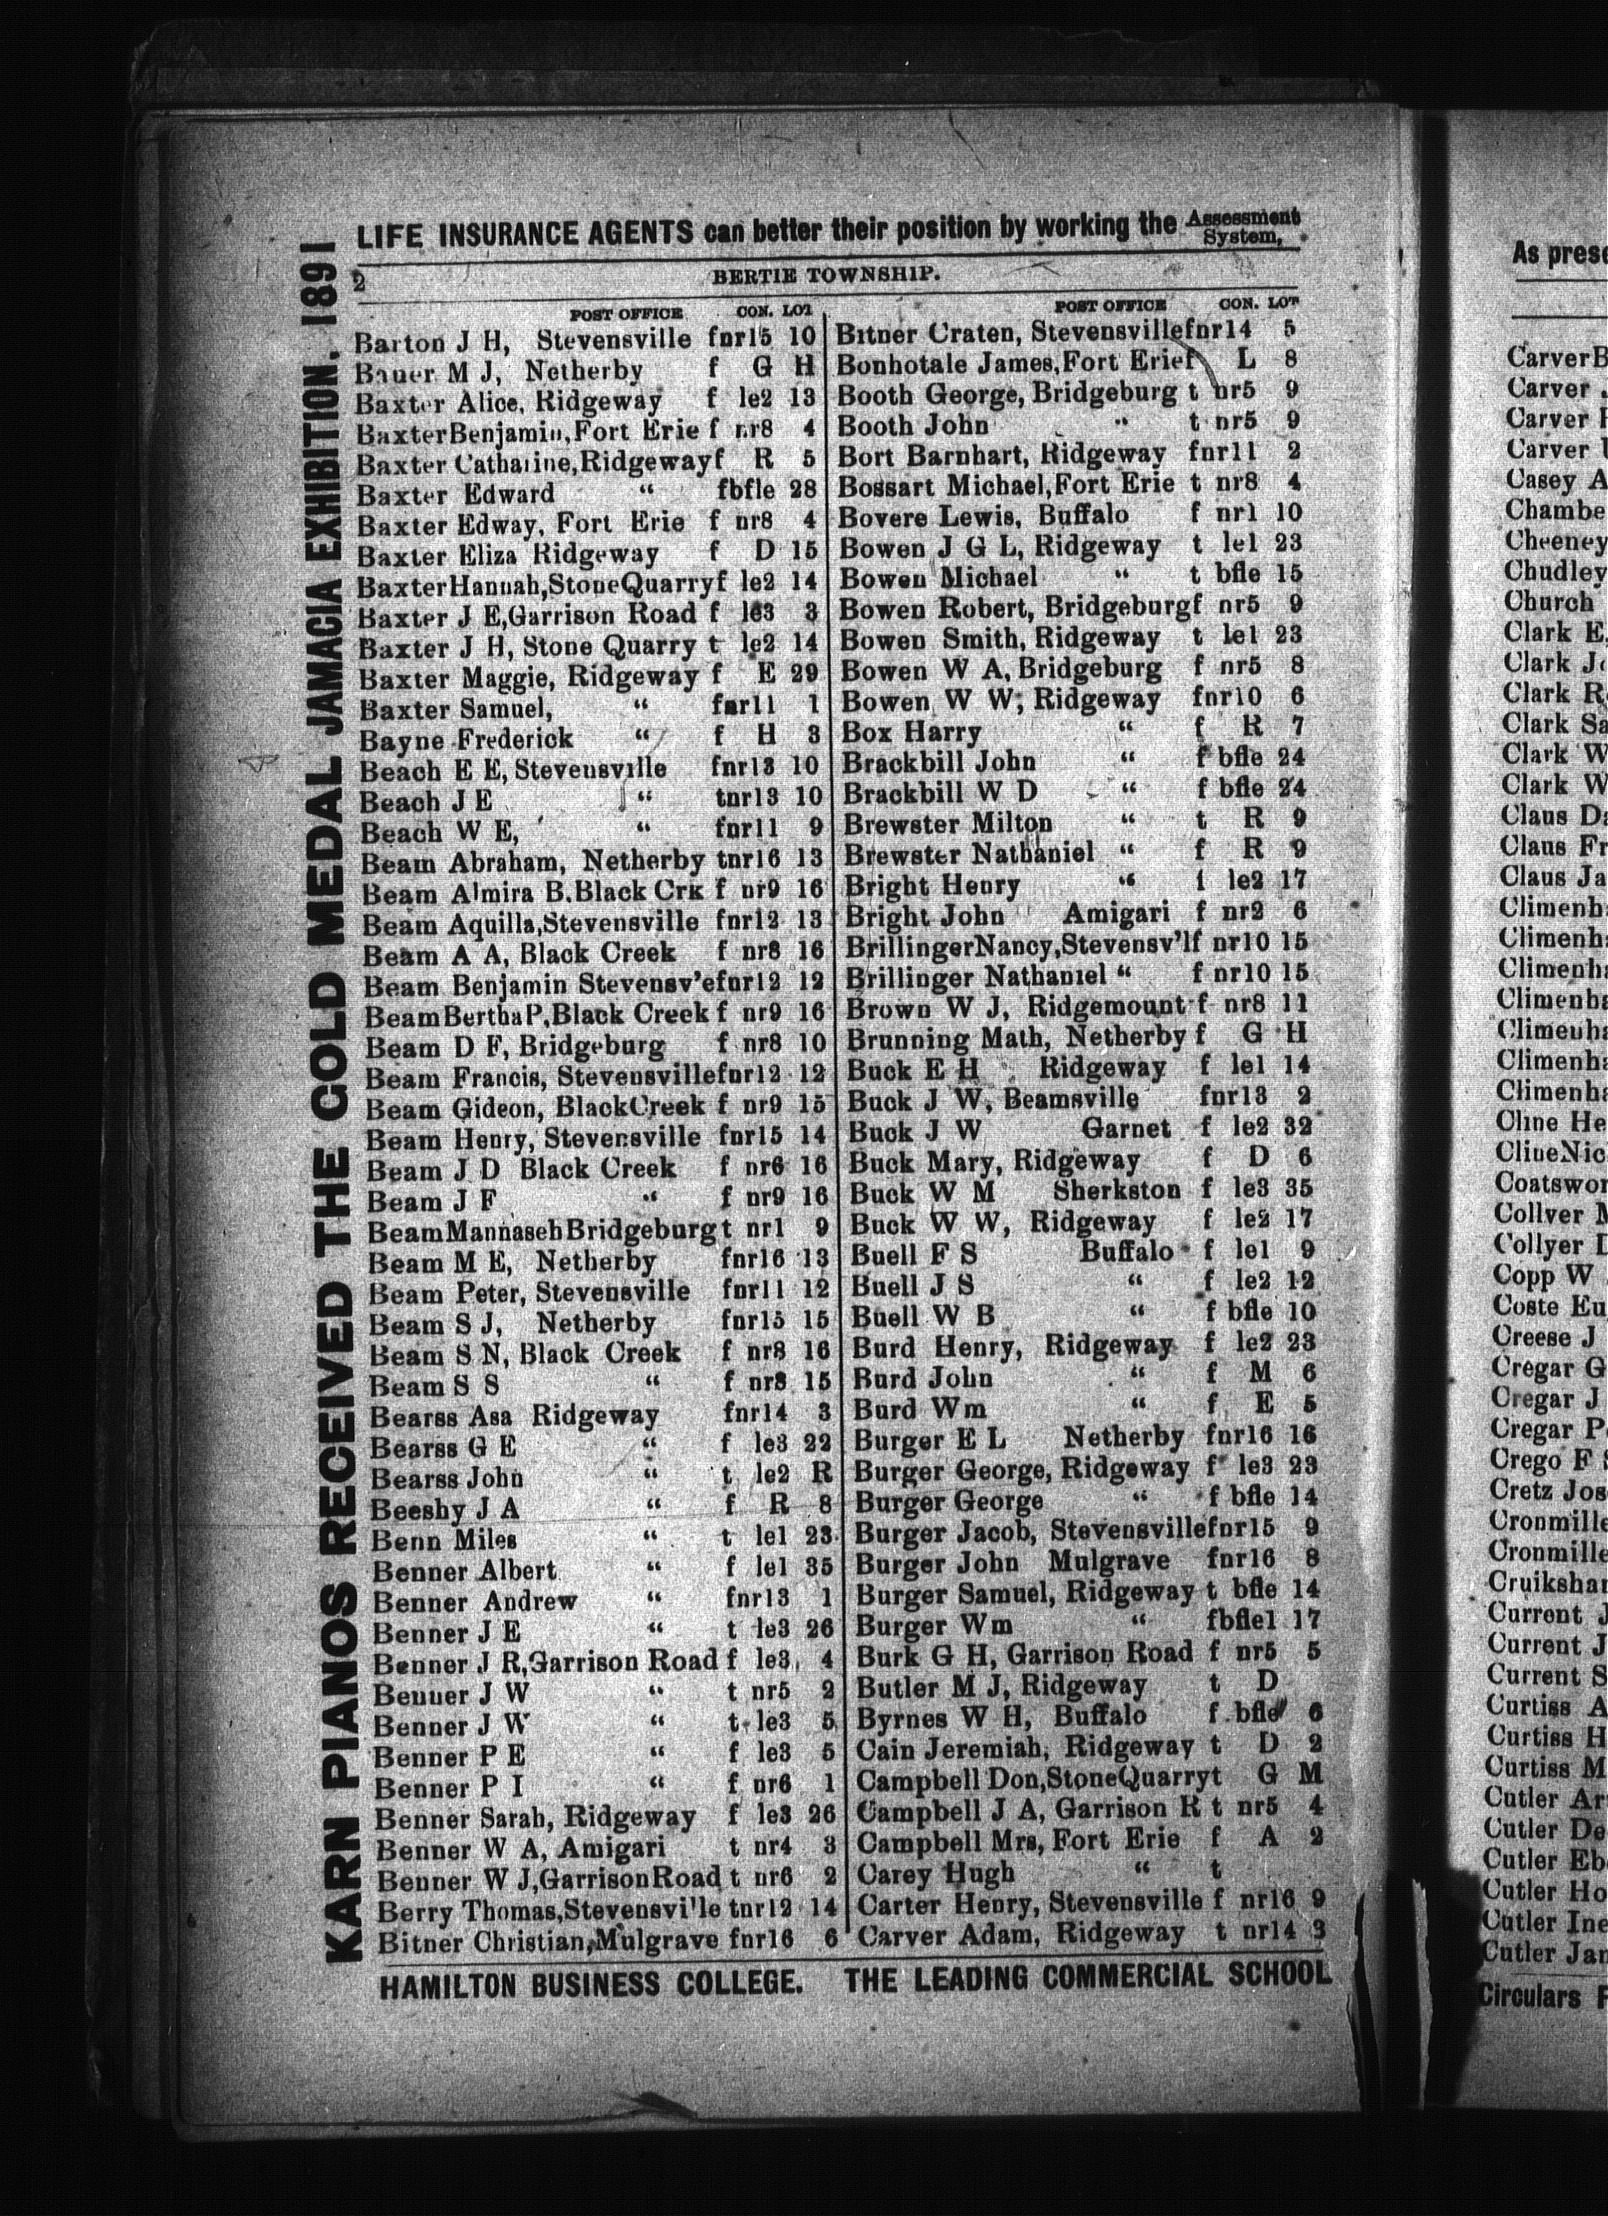 LIFE INSURANCE AGENTS can better their position by working the Assessment System,
2
BERTIE TOWNSHIP.
POST OFFICE CON. LOT
Barton J H, Stevensville fnr15 10
Bauer M J, Netherby f G H
Baxter Alice, Ridgeway f le2 13
Baxter Benjamin, Fort Erie f nr8 4
Baxter Catharine, Ridgeway f R 5
Baxter Edward “ fbfle 28
Baxter Edway, Fort Erie f nr8 4
Baxter Eliza Ridgeway f D 15
Baxter Hannah, Stone Quarry f le2 14
Baxter J E, Garrison Road f le3 3
Baxter J H, Stone Quarry t le2 14
Baxter Maggie, Ridgeway f E 29
Baxter Samuel, “ fnr11 1
Bayne Frederick “ f H 3
Beach E E, Stevensville fnr13 10
Beach J E “ tnr13 10
Beach W E, “ fnr11 9
Beam Abraham, Netherby tnr16 13
Beam Almira B. Black Crk f nr9 16
Beam Aquilla, Stevensville fnr12 13
Beam A A, Black Creek f nr8 16
Beam Benjamin Stevensv'e fnr12 12
Beam Bertha P, Black Creek f nr9 16
Beam D F, Bridgeburg f nr8 10
Beam Francis, Stevensville fnr12 12
Beam Gideon, Black Creek f nr9 15
Beam Henry, Stevensville fnr15 14
Beam J D Black Creek f nr6 16
Beam J F “ f nr9 16
Beam Mannaseh Bridgeburg t nr1 9
Beam M E, Netherby fnr16 13
Beam Peter, Stevensville fnr11 12
Beam S J, Netherby fnr15 15
Beam S N, Black Creek f nr8 16
Beam S S “ f nr8 15
Bearss Asa Ridgeway fnr14 3
Bearss G E “ f le3 22
Bearss John “ t le2 R
Beeshy J A “ f R 8
Benn Miles “ t le1 23
Benner Albert “ f le1 35
Benner Andrew “ fnr13 1
Benner J E “ t le3 26
Benner J R, Garrison Road f le3 4
Benner J W “ t nr5 2
Benner J W “ t le3 5
Benner P E “ f le3 5
Benner P I “ f nr6 1
Benner Sarah, Ridgeway f le3 26
Benner W A, Amigari t nr4 3
Benner W J, Garrison Road t nr6 2
Berry Thomas, Stevensvi'le tnr12 14
Bitner Christian, Mulgrave fnr16 6
POST OFFICE CON. LOT
Bitner Craten, Stevensville fnr14 5
Bonhotale James, Fort Erie f L 8
Booth George, Bridgeburg t nr5 9
Booth John “ t nr5 9
Bort Barnhart, Ridgeway fnr11 2
Bossart Michael, Fort Erie t nr8 4
Bovere Lewis, Buffalo f nr1 10
Bowen J G L, Ridgeway t le1 23
Bowen Michael “ t bfle 15
Bowen Robert, Bridgeburg f nr5 9
Bowen Smith, Ridgeway t le1 23
Bowen W A, Bridgeburg f nr5 8
Bowen W W, Ridgeway fnr10 6
Box Harry “ f R 7
Brackbill John “ f bfle 24
Brackbill W D “ f bfle 24
Brewster Milton “ t R 9
Brewster Nathaniel “ f R 9
Bright Henry “ f le2 17
Bright John Amigari f nr2 6
Brillinger Nancy, Stevensv'l f nr10 15
Brillinger Nathaniel “ f nr10 15
Brown W J, Ridgemount f nr8 11
Brunning Math, Netherby f G H
Buck E H Ridgeway f le1 14
Buck J W, Beamsville fnr13 2
Buck J W Garnet f le2 32
Buck Mary, Ridgeway f D 6
Buck W M Sherkston f le3 35
Buck W W, Ridgeway f le2 17
Buell F S Buffalo f le1 9
Buell J S “ f le2 12
Buell W B “ f bfle 10
Burd Henry, Ridgeway f le2 23
Burd John “ f M 6
Burd Wm “ f E 5
Burger E L Netherby fnr16 16
Burger George, Ridgeway f le3 23
Burger George “ f bfle 14
Burger Jacob, Stevensville fnr15 9
Burger John Mulgrave fnr16 8
Burger Samuel, Ridgeway t bfle 14
Burger Wm “ fbfle1 17
Burk G H, Garrison Road f nr5 5
Butler M J, Ridgeway t D
Byrnes W H, Buffalo f bfle 6
Cain Jeremiah, Ridgeway t D 2
Campbell Don, Stone Quarry t G M
Campbell J A, Garrison R t nr5 4
Campbell Mrs, Fort Erie f A 2
Carey Hugh “ t
Carter Henry, Stevensville f nr16 9
Carver Adam, Ridgeway t nr14 3
HAMILTON BUSINESS COLLEGE. THE LEADING COMMERCIAL SCHOOL
KARN PIANOS RECEIVED THE GOLD MEDAL JAMACIA EXHIBITION, 1891
As prese
Carver B
Carver J
Carver
Carver
Casey A
Chambe
Cheeney
Chudley
Church
Clark E,
Clark J
Clark R
Clark Sa
Clark W
Clark W
Claus Da
Claus Fr
Claus Ja
Climenh
Climenh
Climenha
Climenha
Climenha
Climenha
Climenha
Cline He
Cline Nic
Coatswor
Collver M
Collyer D
Copp W
Coste Eu
Creese J
Cregar G
Cregar J
Cregar P
Crego F S
Cretz Jos
Cronmille
Cronmille
Cruikshan
Current J
Current J
Current S
Curtiss A
Curtiss H
Curtiss M
Cutler Ar
Cutler De
Cutler Eb
Cutler Ho
Cutler Ine
Cutler Jan
Circulars F